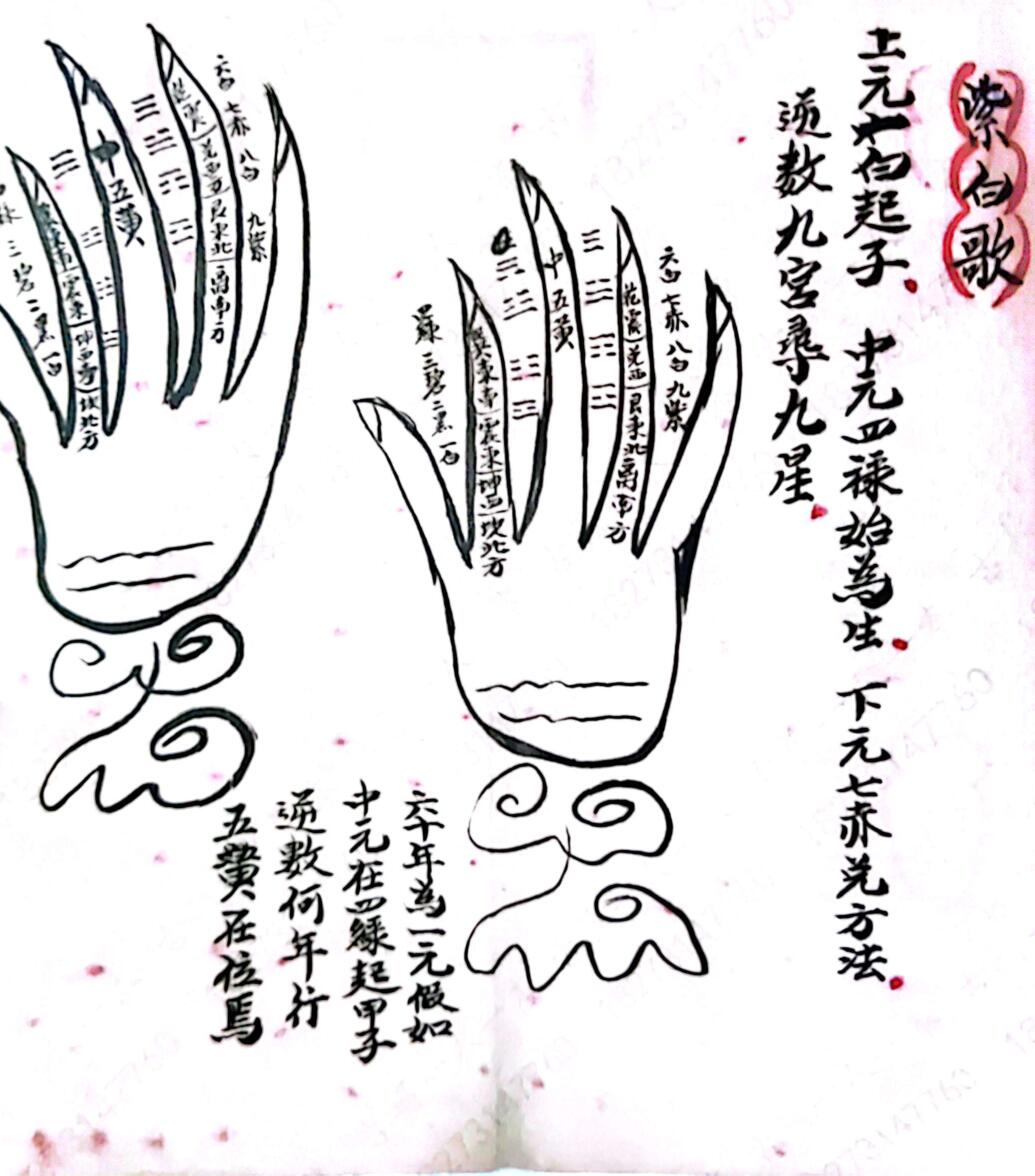 紫白歌
上元一白起子 中元四祿始為生 下元七赤兌方法
逆数九宮尋九星
六白 七赤 八白 九紫
乾震 兌西 艮東北 离南方
中 五黄
巽東南 震東 坤西 坎北方
三碧 二黑 一白
六十年為一元假如
中元在四綠起甲子
逆數何年行
五黃在位焉
六白 七赤 八白
九紫
兌西 艮東北 离南方
中五黃
震東 坤西 坎北方
三碧 二黑 一白